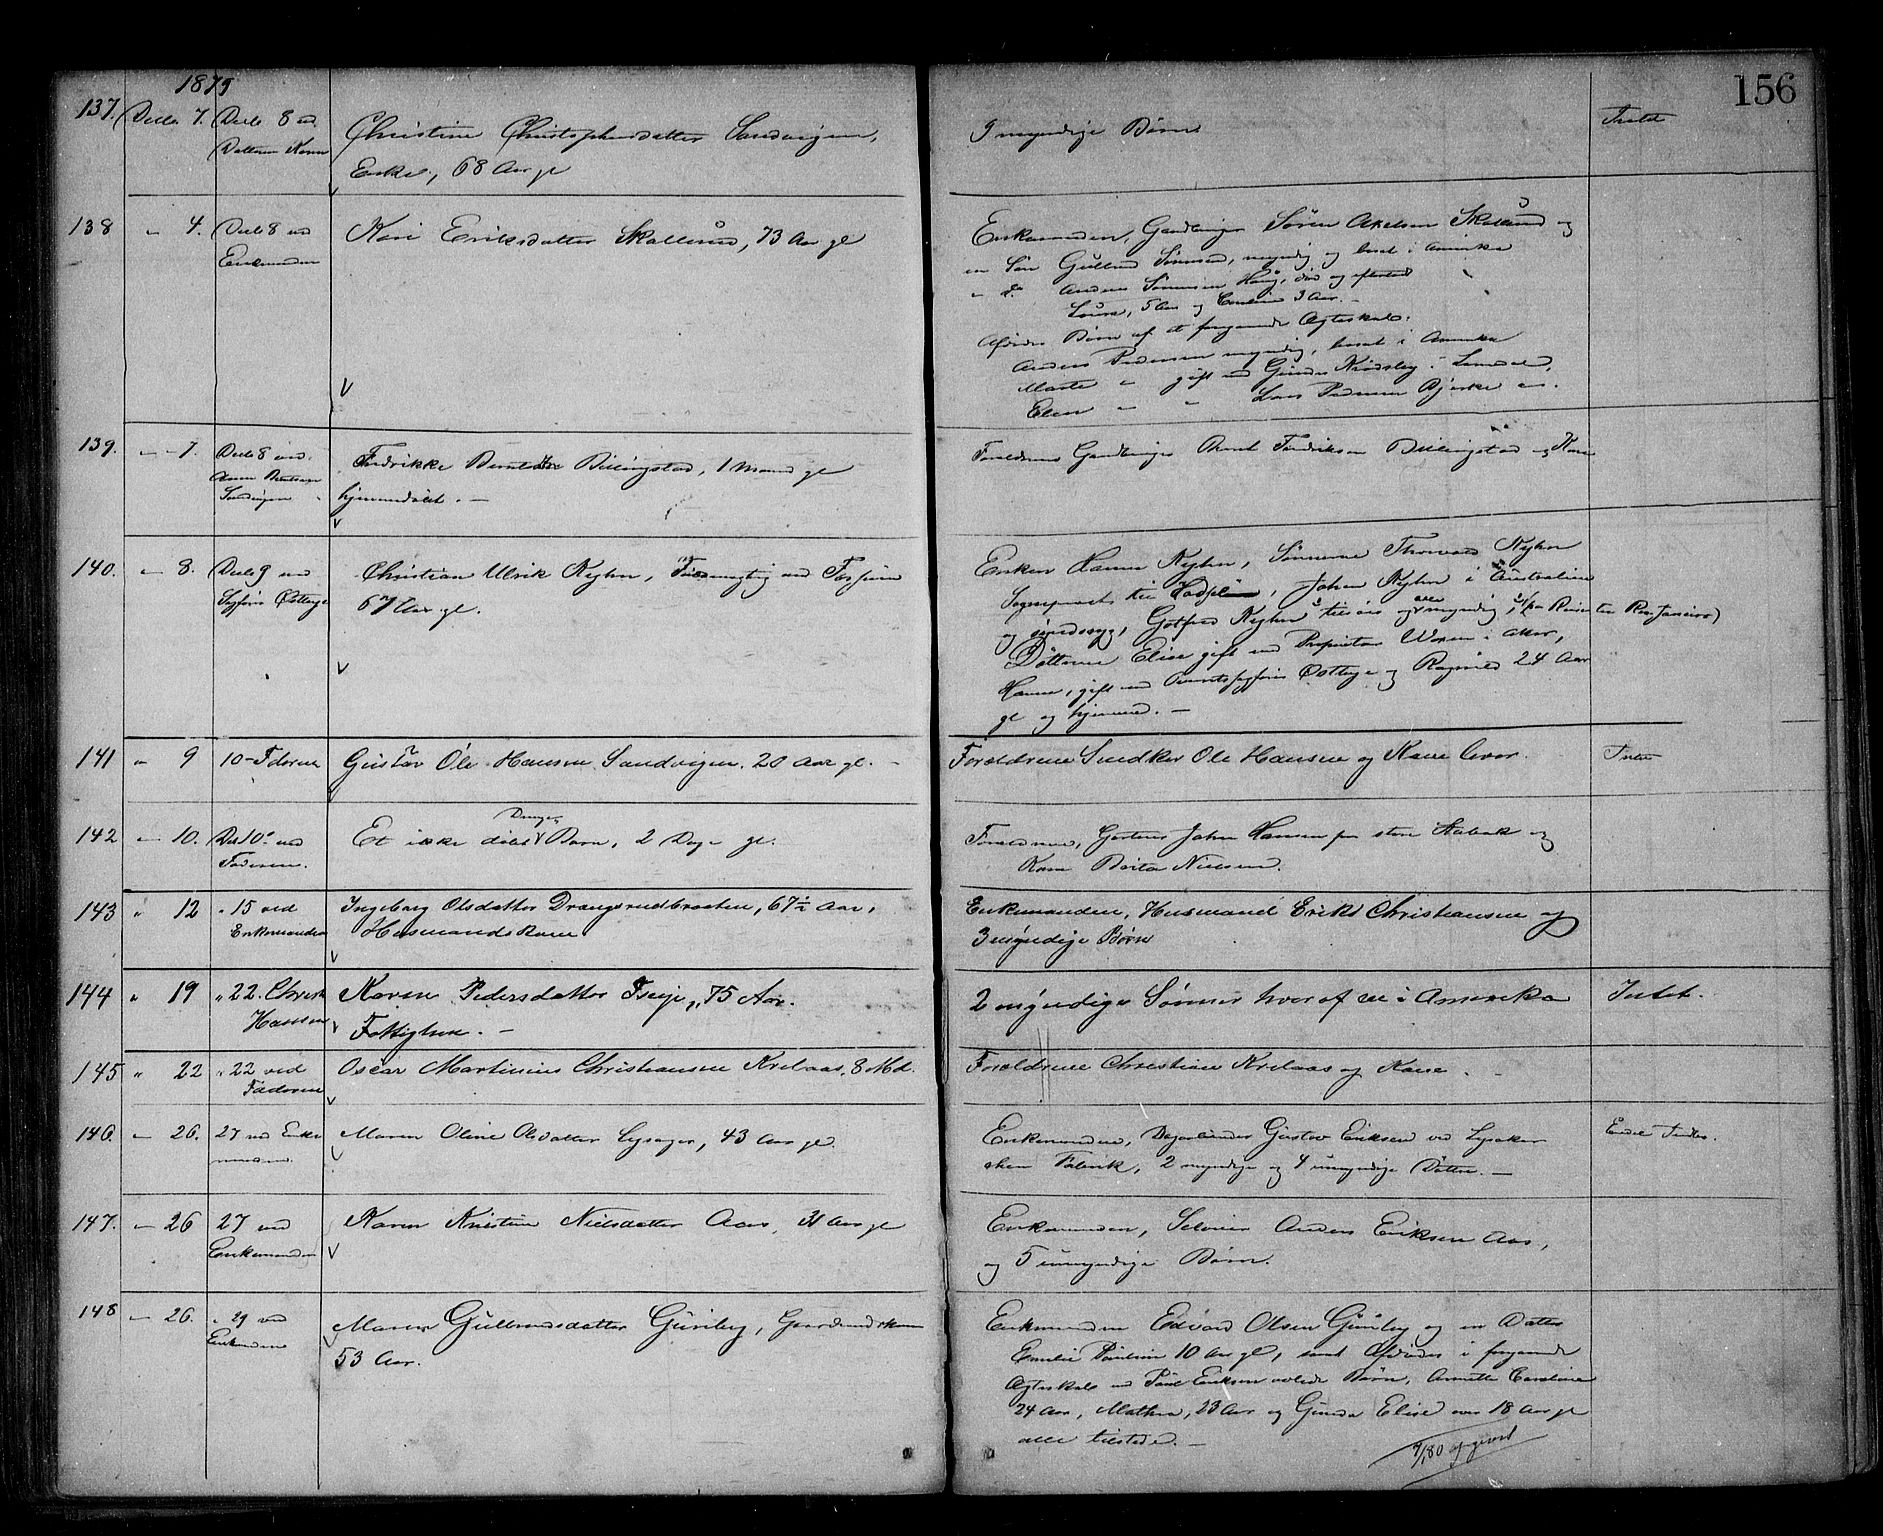 156
1879
137. Decbr 7. Decb 8 ved Datteren Karen
Christine Christophersdatter Sandvigen,
Enke, 68 Aar gl
9 myndige Børn
Intet
138 " 4. Decb 8 ved Enkemanden
Kari Eriksdatter Skallerud, 73 Aar gl
Enkemanden, Gaardbruger Søren Axelsen Skallerud og
en Søn Gulbrand Sørensen, myndig og bosat i Amerika
" do Anders Sørensen Haug, død og efterladt
Louise, 5 Aar og 3 Aar. -
Afdødes Børn af et foregaaende Ægteskab.
Anders Pedersen myndig, bosat i Amerika
Marte " gift med Gunder i
Elen " " Lars Pedersen Bjerke
139. " 7. Decb 8 ved Sandvigen
Fredrikke Berntsdatter Billingstad, 1 Maaned gl
hjemmedøbt. -
Forældrene Gaardbruger Bernt Fredriksen Billingstad og Kone
140. " 8. Decb 9 ved Sagfører Østbye
Christian Ulrik Nyhn, Fuldmægtig ved Fossum
67 Aar gl.
Enken Hanne Nyhn, Sønnerne Thorvald Nyhn
Sognepræst til, Johan Nyhn i Australien
og sindssyg, Gotfred Nyhn tilsøes og myndig, paa Reise til Rio Janeiro)
Døttrene Elise gift med Proprietær i Aker,
Hanne, gift med Overretssagfører Østbye og Ragnild 24 Aar
gl og hjemme. -
141 " 9 10 - Faderen
Gustav Ole Hansen Sandvigen. 20 Aar gl. -
Forældrene Snedker Ole Hansen og Kone lever.
Intet
142 " 10. Dec 10 ved Faderen.
Et ikke døbt Drenge Barn, 2 Dage gl.
Forældrene, Gartner Johan Hansen paa store Stabæk og
Kone Berta Nielsen.
143 " 12 " 15 ved Enkemanden
Ingeborg Olsdatter Drangsrudbraaten, 67½ Aar,
Husmandskone
Enkemanden, Husmand Erik Christiansen og
3 myndige Børn
144 " 19 " 22. Christ Hansen
Karen Pedersdatter, 75 Aar.
Fattiglem. -
2 myndige Sønner hvoraf en i Amerika
Intet.
145 " 22 " 22 ved Faderen
Oscar Martinius Christiansen Krelaas, 8 Md.
Forældrene Christian Krelaas og Kone. -
146. " 26. 27 ved Enkemanden.
Maren Oline Olsdatter Lysager, 43 Aar gl.
Enkemanden, Dagarbeider Gustav Eriksen ved Lysaker
Fabrik, 2 myndige og 4 umyndige Døttre. -
147. " 26 27 ved Enkemanden
Karen Kristine Nielsdatter Aas, 31 Aar gl
Enkemanden, Selveier Anders Eriksen Aas,
og 5 umyndige Børn.
148 " 26. " 29 ved Enkemanden
Maren Gulbrandsdatter Guriby, Gaardmandskone
53 Aar.
Enkemanden Edvard Olsen Guriby og en Datter
Emilie Paulsine 10 Aar gl, samt Afdødes i foregaaende
Ægteskab med Paul Eriksen avlede Børn, Annette Caroline
24 Aar, Mathea, 23 Aar og Gunda Elise over 18 Aar gl
alle tilstede. -